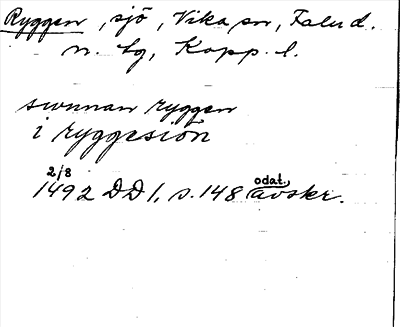 Ryggen, sjö, Vika sn, Falu d.
n. bg, Kopp. l.
swnnan ryggen
i ryggesiön
2/8
1492 DD 1, s. 148 odat. avskr.